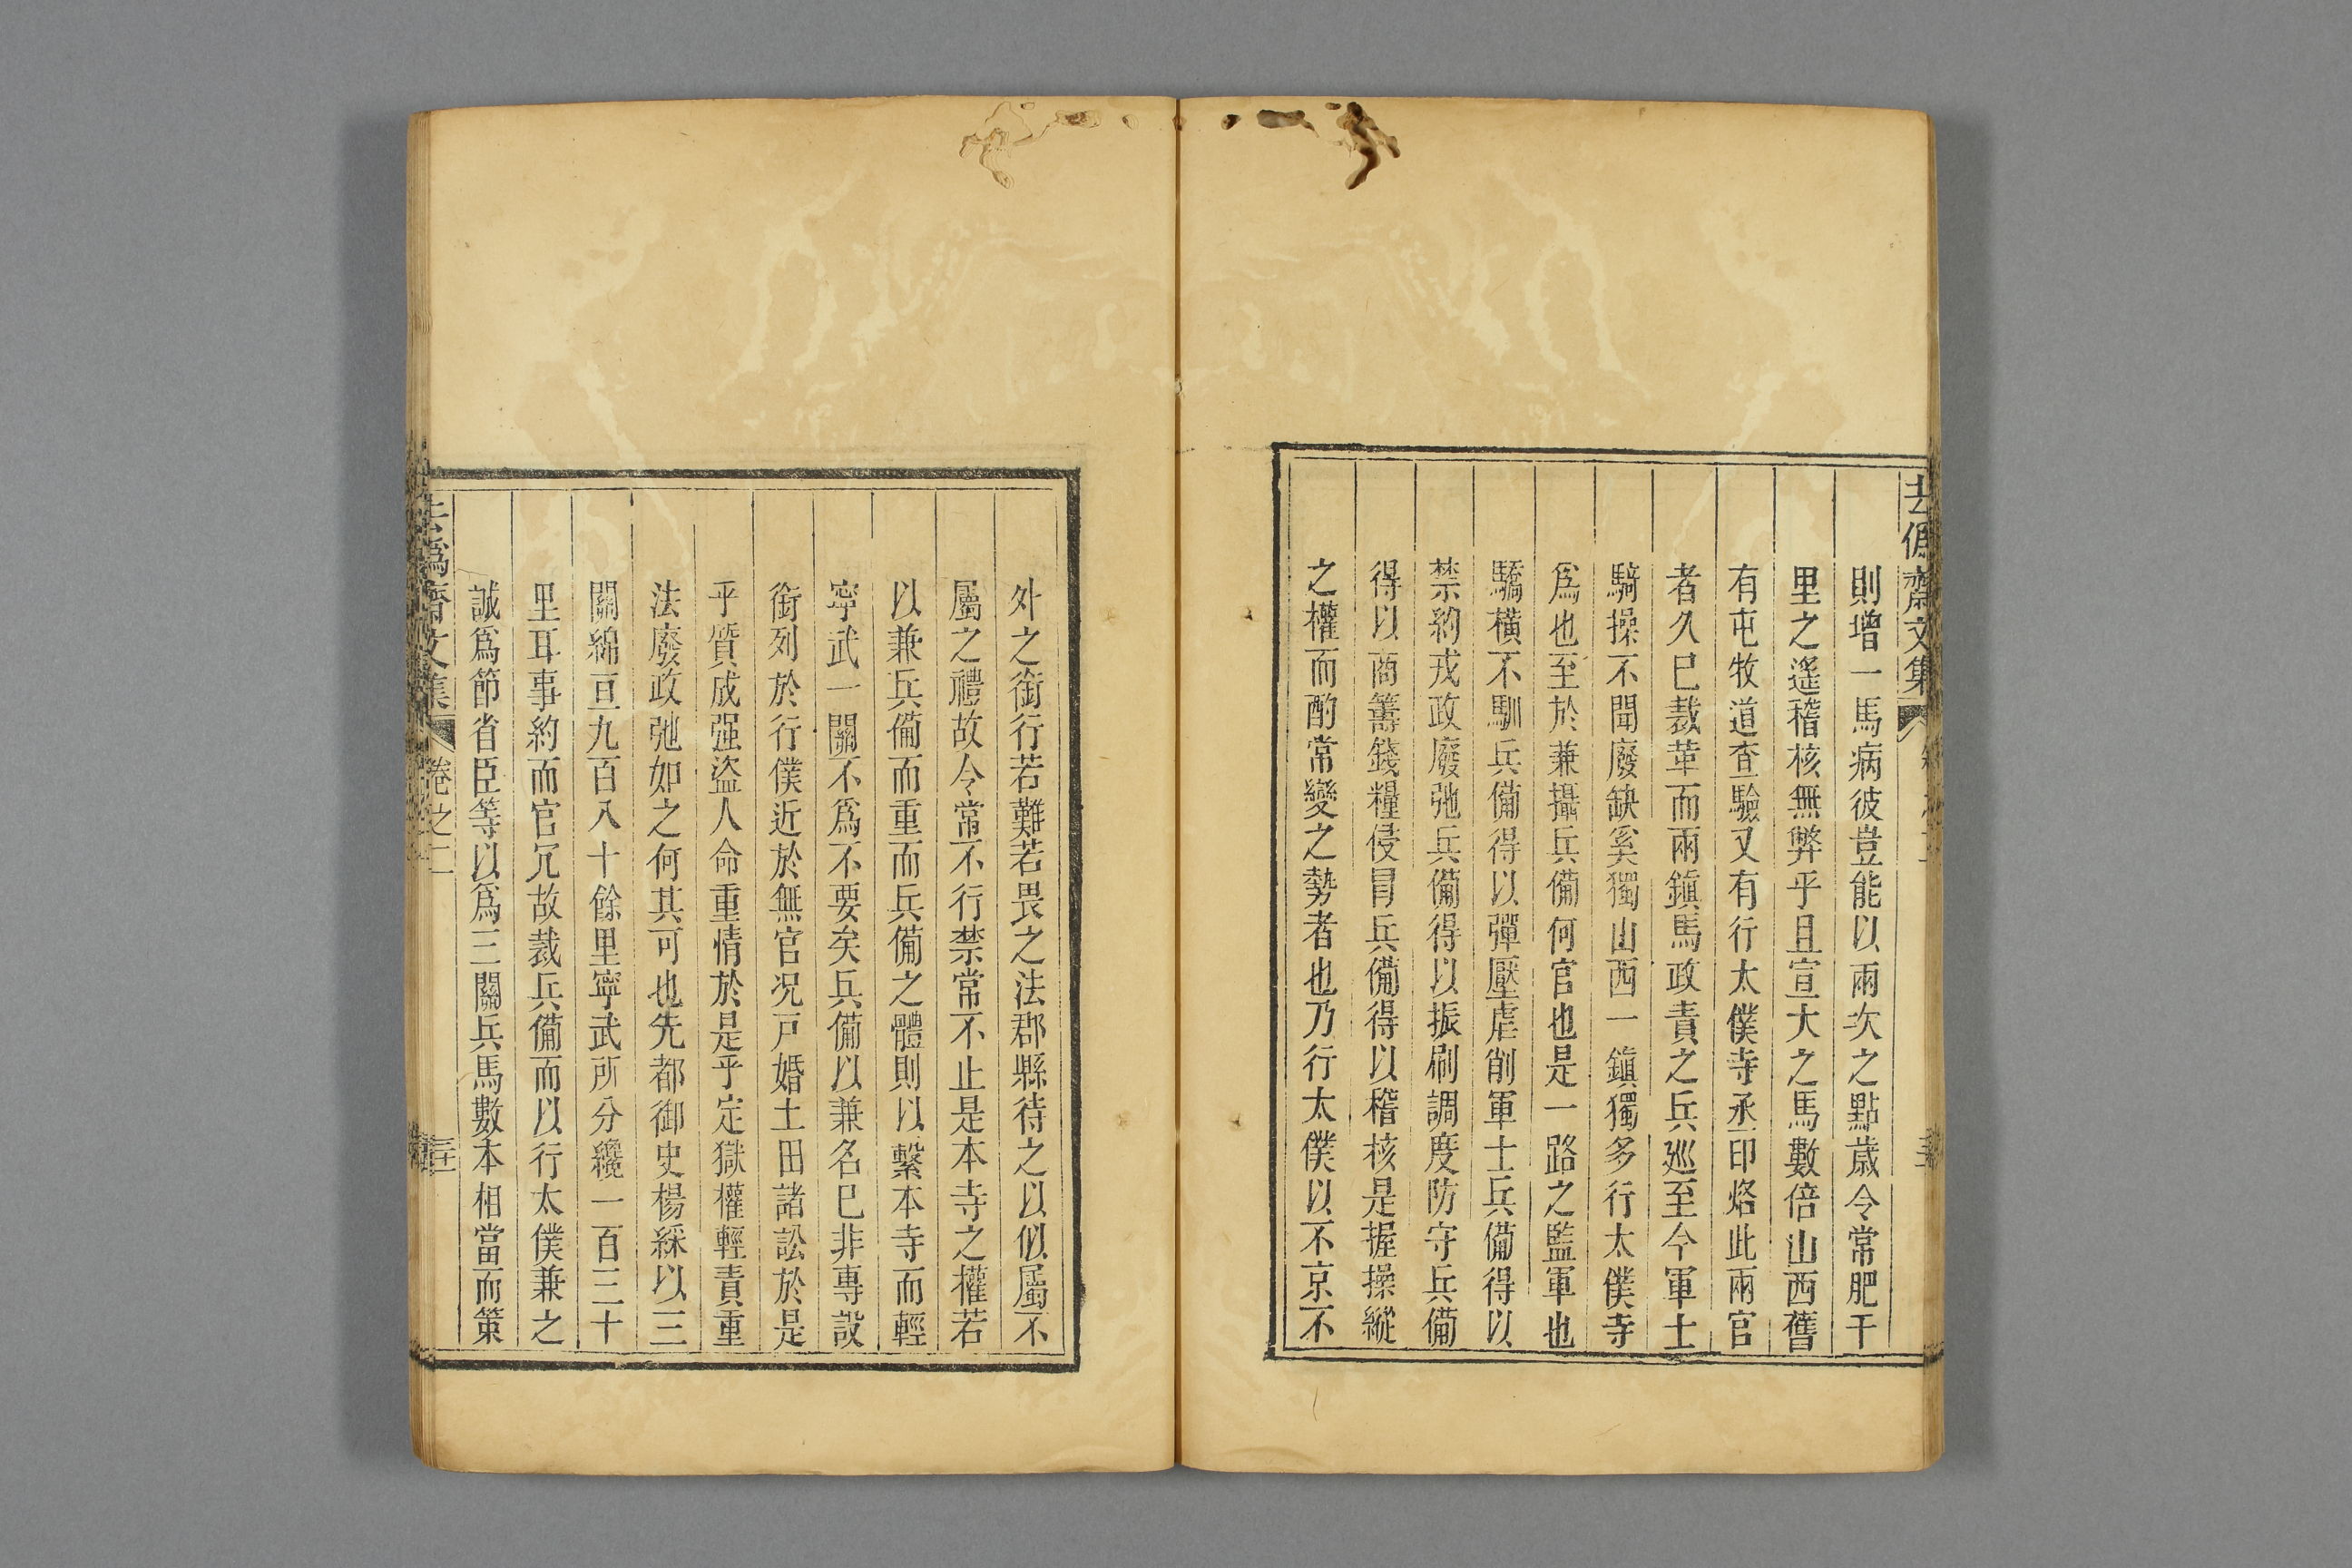 去偽齋文集
則增一馬病彼豈能以兩次之點歲令常肥干
里之遙稽核無弊乎且宣大之馬數倍山西舊
有屯牧道查驗又有行太僕寺丞印烙此兩官
者久巳裁革而兩鎮馬政責之兵廵至今軍士
騎操不聞廢缺奚獨山西一鎮獨多行太僕寺
爲也至於兼攝兵備何官也是一路之監軍也
驕橫不馴兵備得以彈壓虐削軍士兵備得以
禁約戎政廢弛兵備得以振刷調度防守兵備
得以商籌錢糧侵冐兵備得以稽核是握操縱
之權而酌常變之勢者也乃行太僕以不京不
外之銜行若難若畏之法郡縣待之以似屬不
屬之禮故令常不行禁常不止是本寺之權若
以兼兵備而重而兵備之體則以繫本寺而輕
寧武一關不爲不要矣兵備以兼名巳非專設
銜列於行僕近於無官况戸婚土田諸訟於是
乎質成强盜人命重情於是乎定獄權輕責重
法廢政弛如之何其可也先都御史楊綵以三
關綿亘九百八十餘里寧武所分纔一百三十
里耳事約而官冗故裁兵備而以行太僕兼之
誠爲節省臣等以爲三關兵馬數本相當而策
去僞齋文集
卷之二